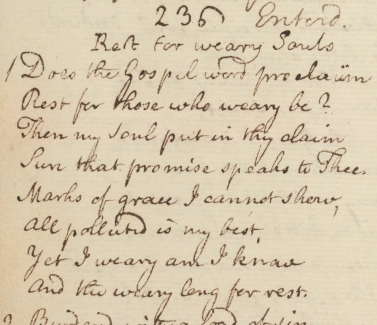 236 Enterd.
Rest for weary Souls
1 Does the Gospel word proclaim
Rest for those who weary be?
Then my Soul put in thy claim
Sure that promise speaks to Thee.
Marks of grace I cannot shew,
All polluted is my best,
Yet I weary am I know
And the weary long for rest.
2